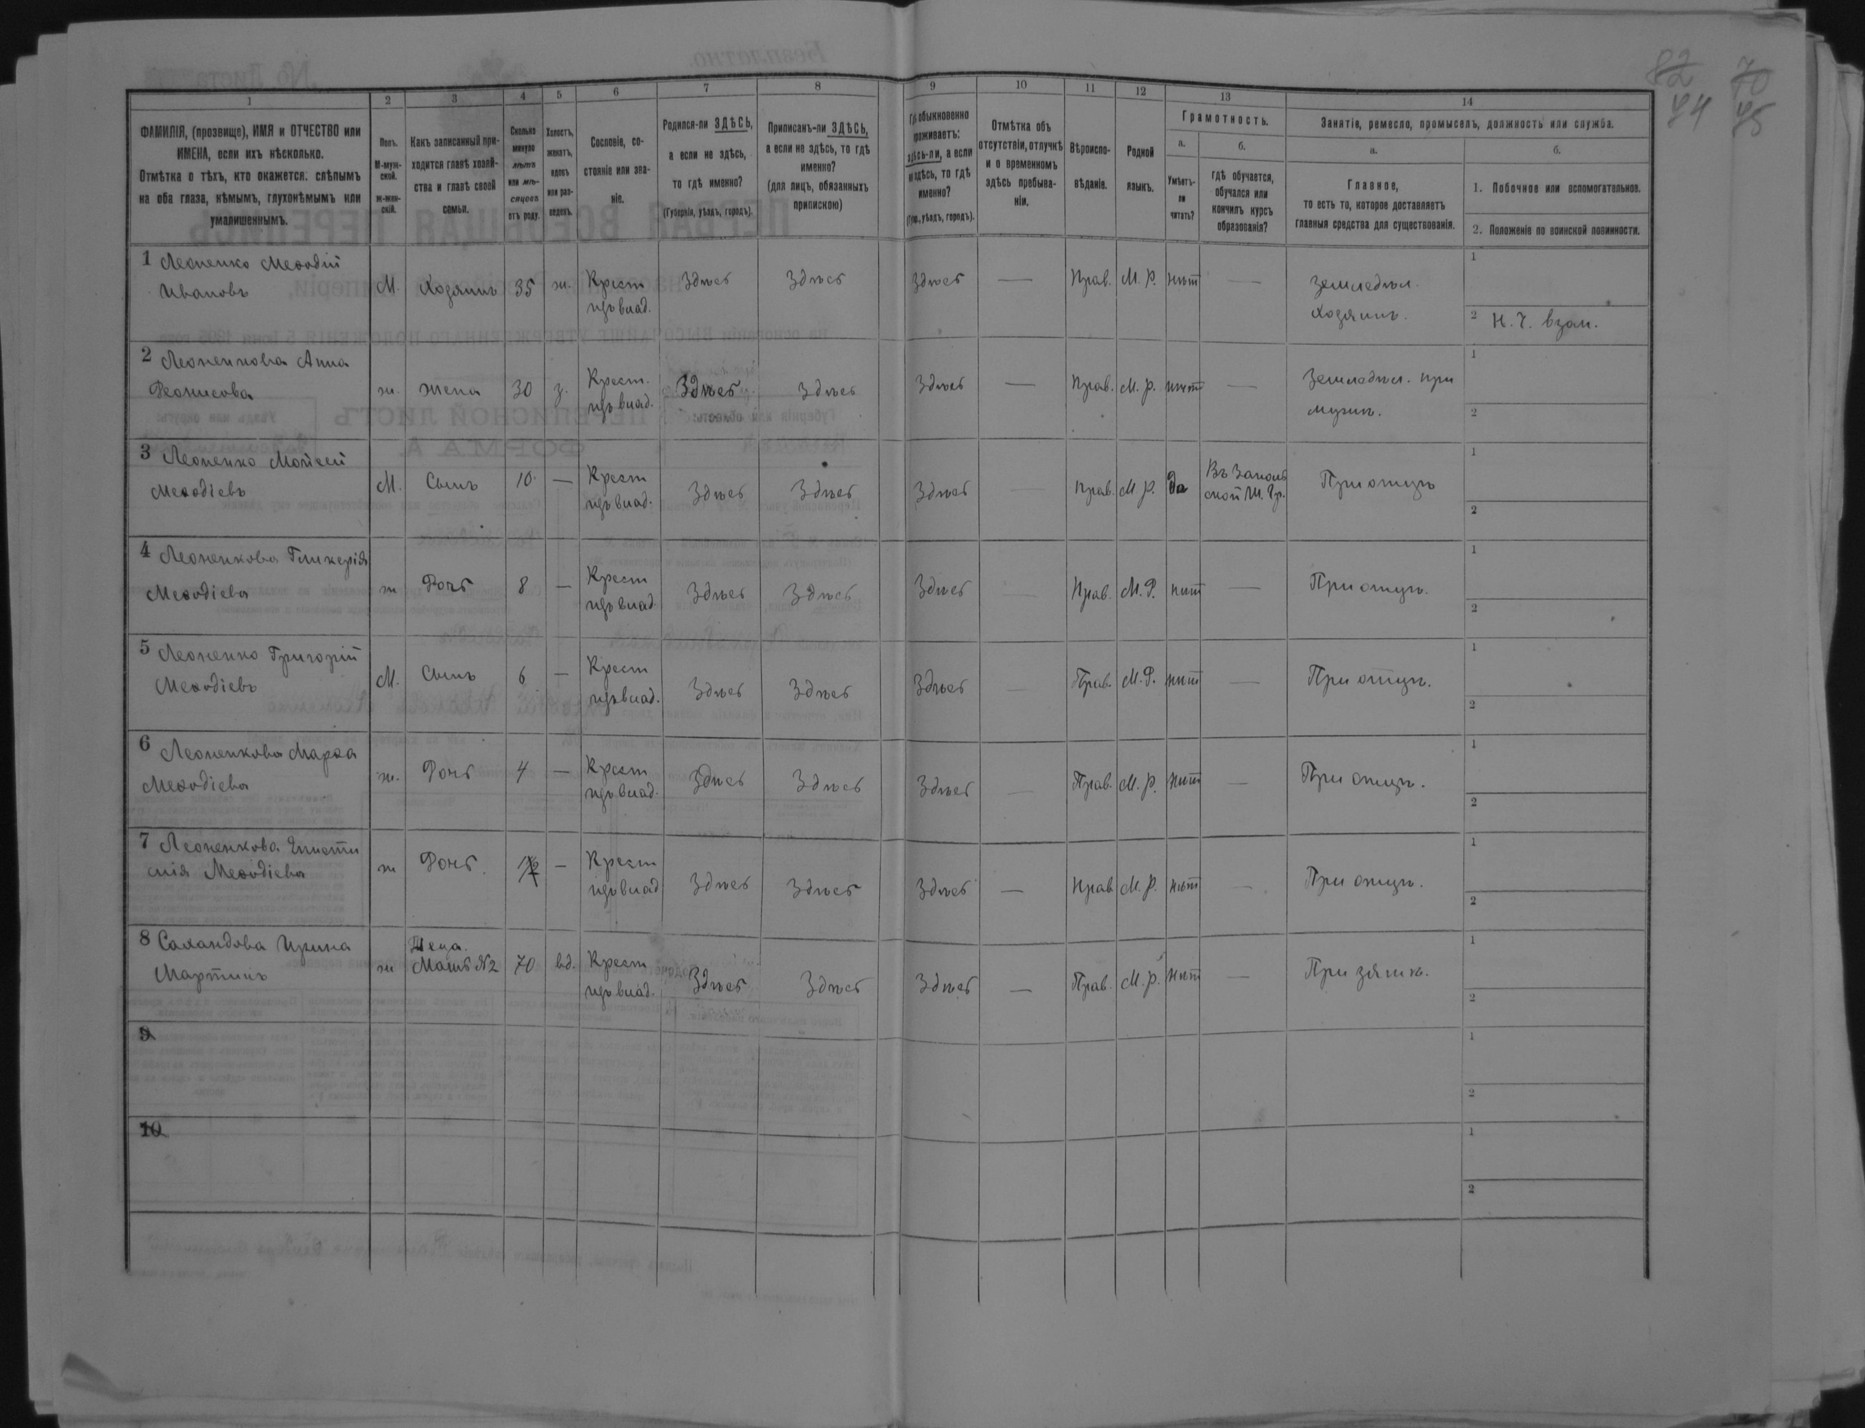 82 70
74 75
1 2 3 4 5 6 7 8 9 10 11 12 13 14
ФАМИЛІЯ, (прозвище), ИМЯ и ОТЧЕСТВО или
ИМЕНА, если ихъ нѣсколько.
Отмѣтка о тѣхъ, кто окажется. слѣпымъ
на оба глаза, нѣмымъ, глухонѣмымъ или
умалишеннымъ.
Полъ.
М-муж-
ской.
ж-жен-
скій.
Какъ записанный при-
ходится главѣ хозяй-
ства и главѣ своей
семьи.
Сколько
минуло
лѣтъ
или мѣ-
сяцевъ
отъ роду.
Холостъ,
женатъ,
вдовъ
или раз-
веденъ.
Сословіе, со-
стояніе или зва-
ніе.
Родился-ли ЗДѢСЬ,
а если не здѣсь,
то гдѣ именно?
(Губернія, уѣздъ, городъ).
Приписанъ-ли ЗДѢСЬ,
а если не здѣсь, то гдѣ
именно?
(для лицъ, обязанныхъ
припискою)
Гдѣ обыкновенно
проживаетъ:
здѣсь-ли, а если
не здѣсь, то гдѣ
именно?
(Губ., уѣздъ, городъ).
Отмѣтка объ
отсутствіи, отлучкѣ
и о временномъ
здѣсь пребыва-
ніи.
Вѣроиспо-
вѣданіе.
Родной
языкъ.
Грамотность.
а.
Умѣетъ-
ли
читать?
б.
гдѣ обучается,
обучался или
кончилъ курсъ
образованія?
Занятіе, ремесло, промыселъ, должность или служба.
а.
Главное,
то есть то, которое доставляетъ
главныя средства для существованія.
б.
1. Побочное или вспомогательное.
2. Положеніе по воинской повинности.
1 Леоненко Меѳодій
Ивановъ
М. Хозяинъ 35 ж. Крест
изъ влад. Здѣсь Здѣсь Здѣсь — Прав. М. Р. нѣт — Земледѣл.
Хозяинъ.
1
2 Н. Ч. взам.
2 Леоненкова Анна
Ѳеонисова
ж. жена 30 з. Крест.
изъ влад. Здѣсь Здѣсь Здѣсь — Прав. М. р. нѣт — Земледѣл. при
мужѣ.
1
2
3 Леоненко Мойсей
Меѳодіевъ
М. Сынъ 10 — Крест
изъ влад. Здѣсь Здѣсь Здѣсь — Прав. М. р. да Въ
ской При отцѣ
1
2
4 Леоненкова Гликерія
Меѳодіева
ж Дочь 8 — Крест
изъ влад Здѣсь Здѣсь Здѣсь — Прав. М. Р. нѣт — При отцѣ.
1
2
5 Леоненко Григорій
Меѳодіевъ
М. Сынъ 6 — Крест
изъ влад. Здѣсь Здѣсь Здѣсь — Прав. М. Р. нѣт — При отцѣ.
1
2
6 Леоненкова Марѳа
Меѳодіева
ж. Дочь 4 — Крест
изъ влад. Здѣсь Здѣсь Здѣсь — Прав. М. р. нѣт — При отцѣ.
1
2
7 Леоненкова Еписти
мія Меѳодіева
ж Дочь. — Крест
изъ влад Здѣсь Здѣсь Здѣсь — Прав М. р. нѣт — При отцѣ.
1
2
8 Саландова Ирина
Мартинъ
ж Теща.
Мать №2 70 вд. Крест
изъ влад. Здѣсь Здѣсь Здѣсь — Прав. М. р. нѣт — При зятѣ.
1
2
9
1
2
10
1
2